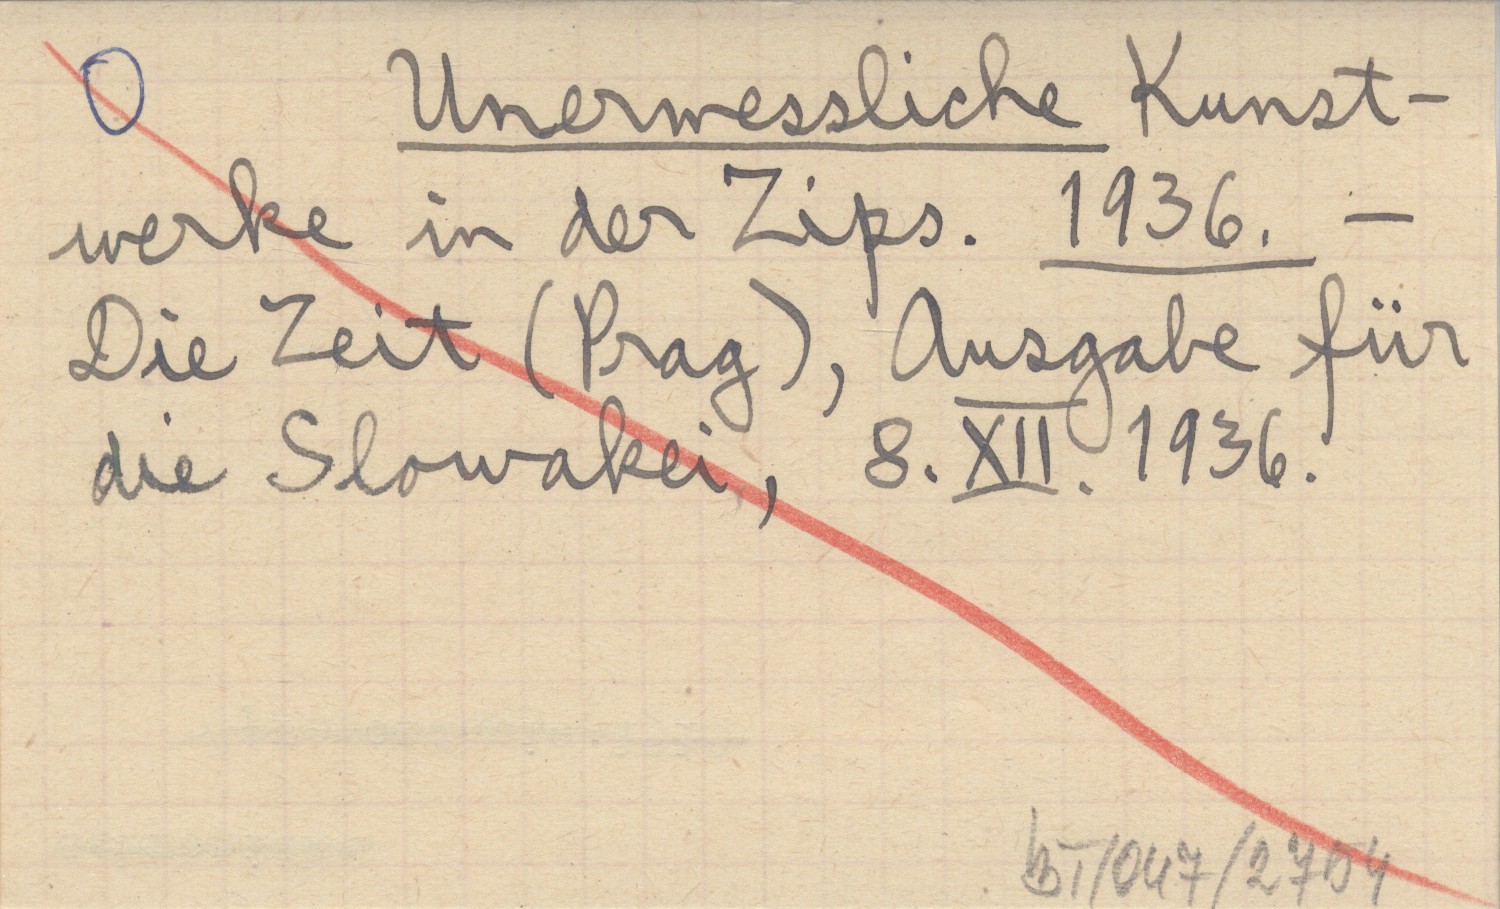 Unermessliche Kunst-
werke in der Zips. 1936. —
Die Zeit (Prag), Ausgabe für
die Slowakei, 8. XII. 1936.